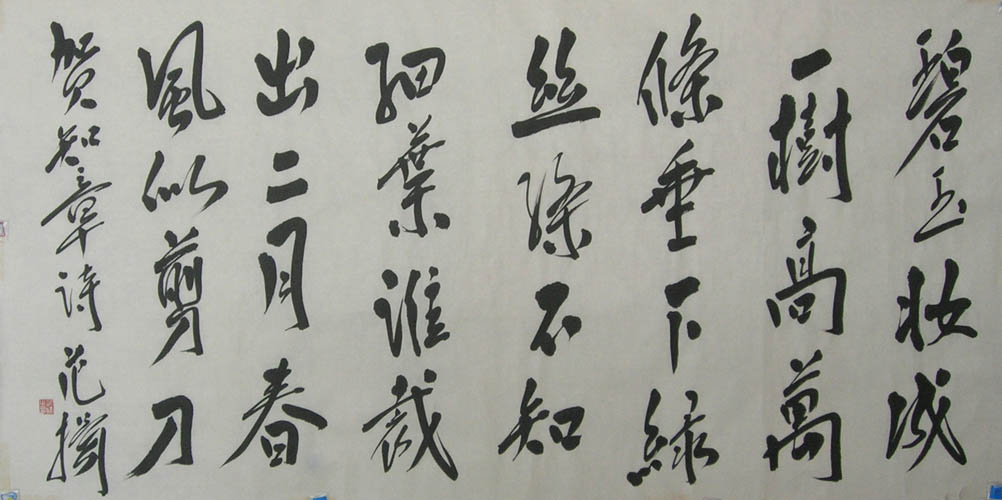 碧玉妝成
一樹高萬
條垂下綠
絲絛不知
細葉誰裁
出二月春
風似剪刀
賀知章詩 范